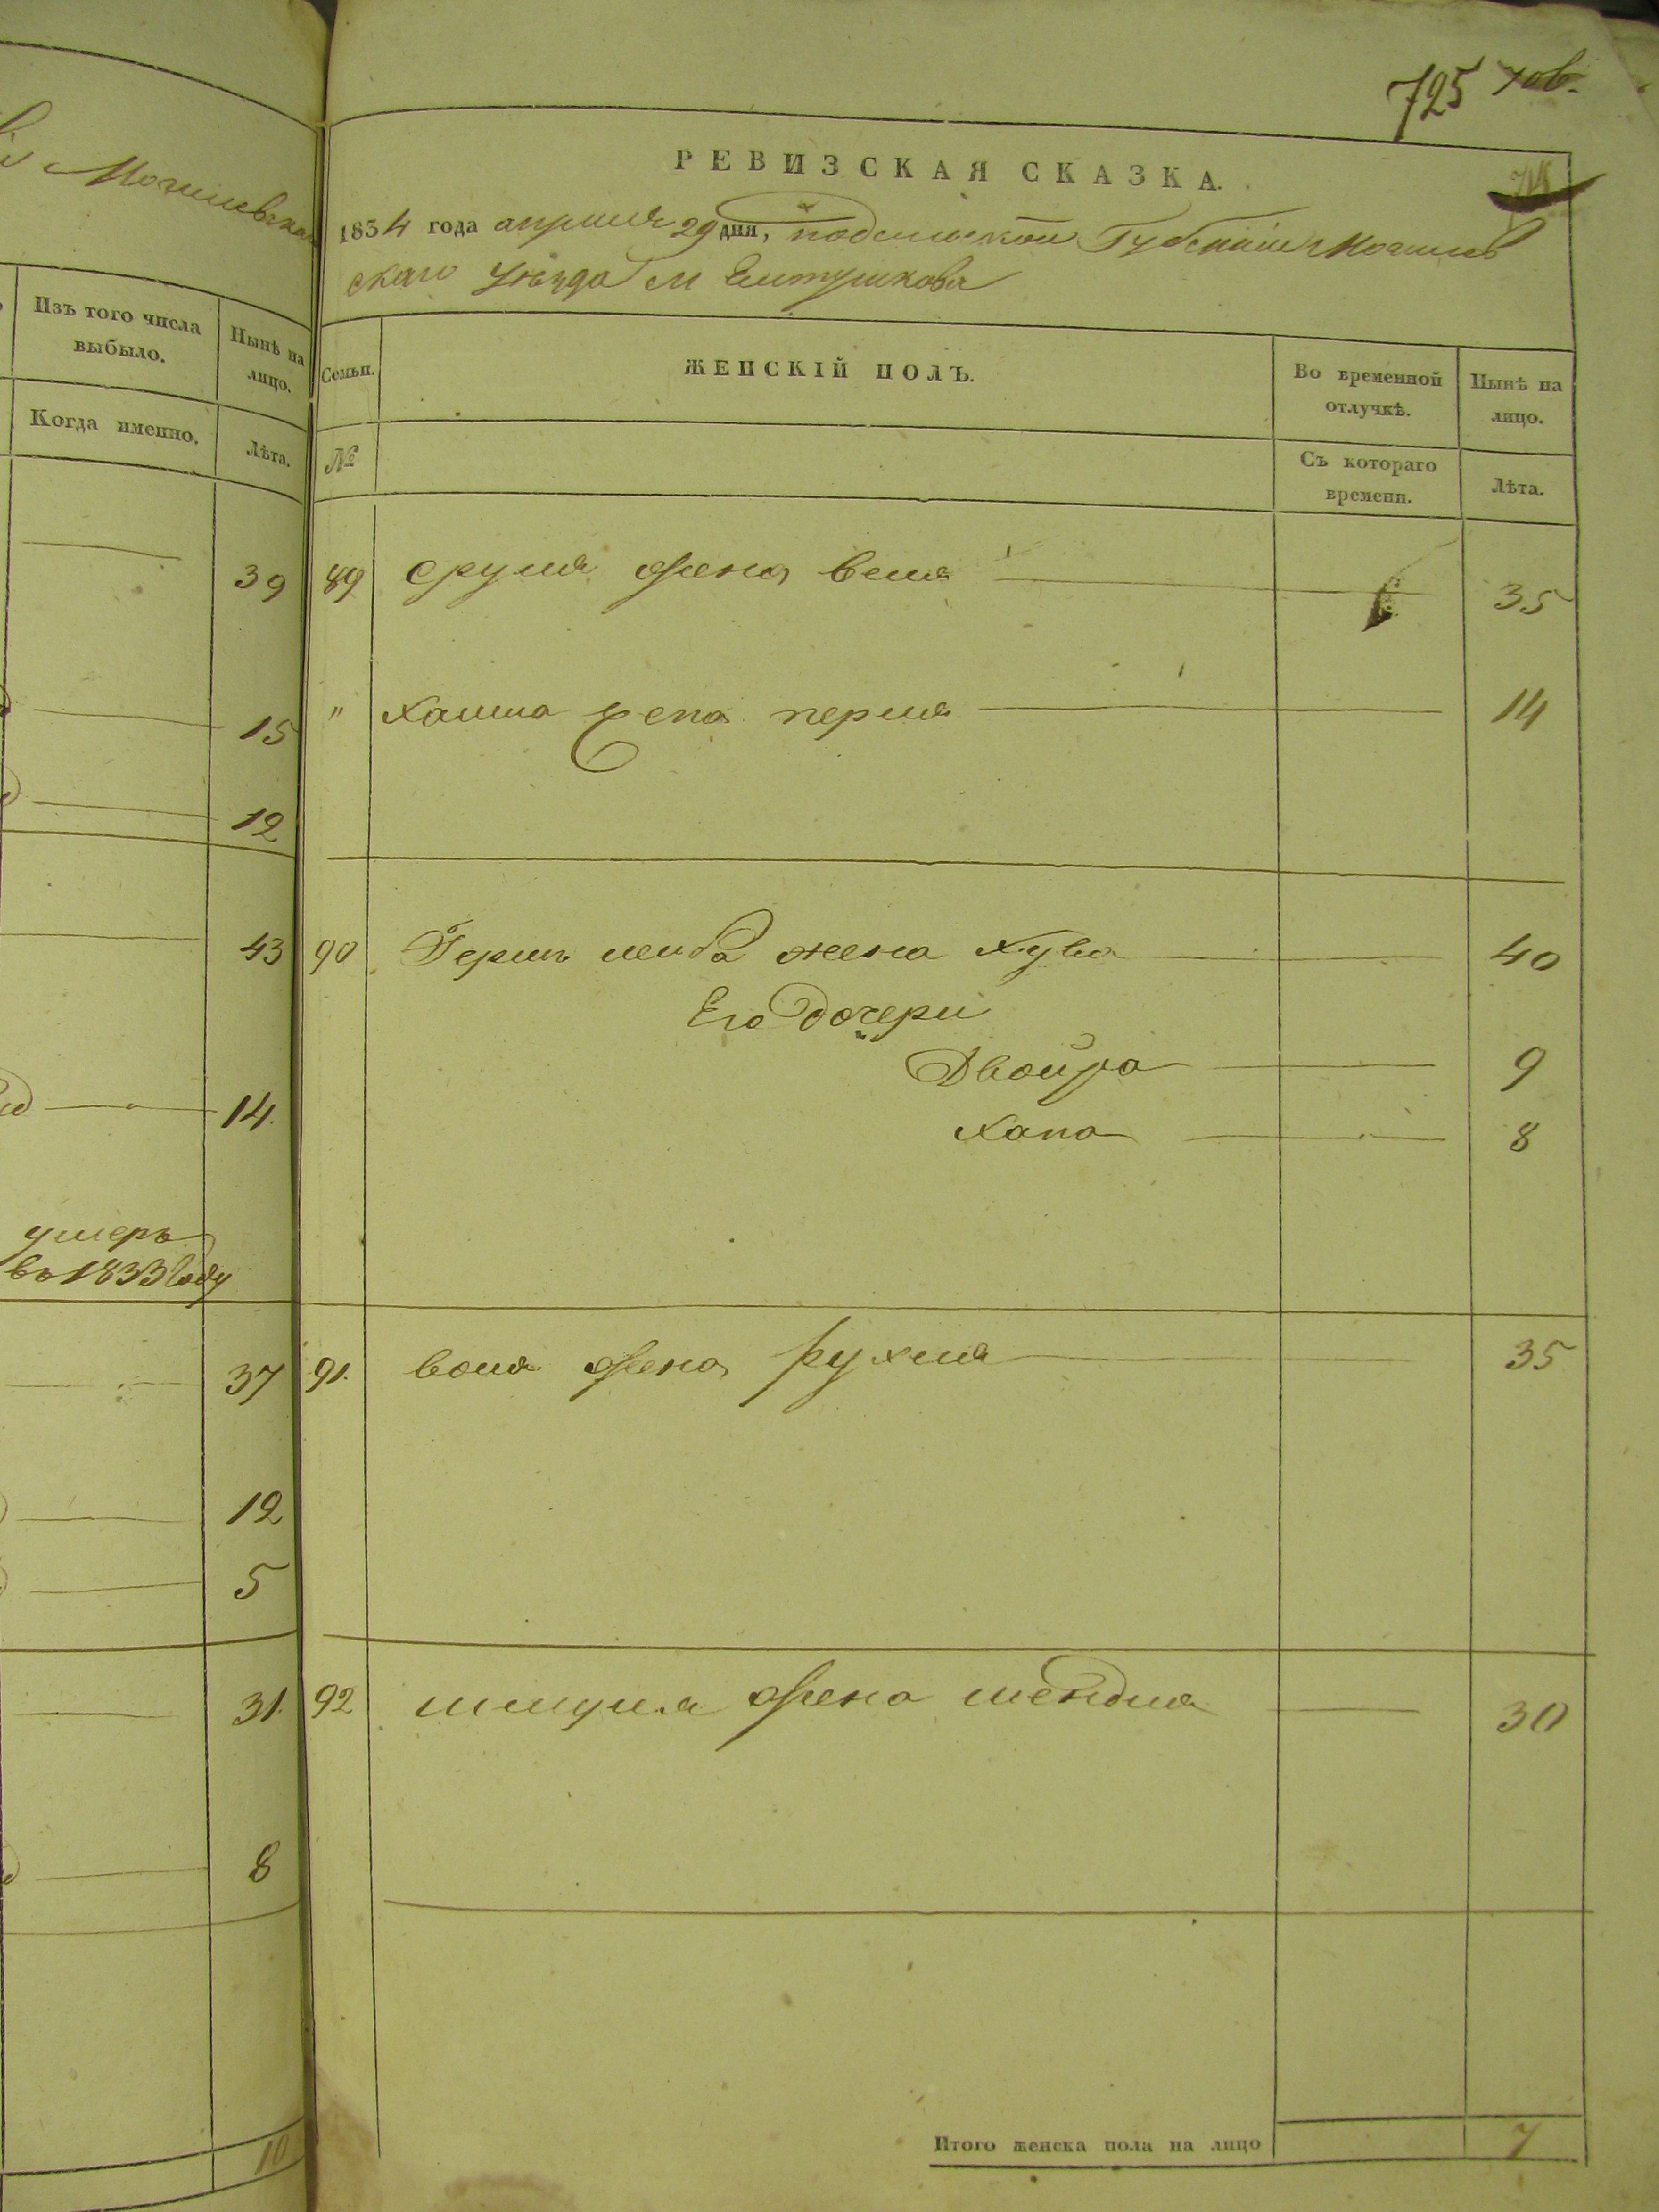 725 
Могилевска
РЕВИЗСКАЯ СКАЗКА.
1834 года апреля 29 дня, подольской Губерніи Могилев
скаго Уѣзда м Елтушкова
Изъ того числа
выбыло.
Нынѣ на
лицо.
Когда именно.
Лѣта.
Семьи.
№
ЖЕНСКІЙ ПОЛЪ.
Во временной
отлучкѣ.
Съ котораго
времени.
Нынѣ на
лицо.
Лѣта.
39
89 сруля жена веля 35
15
" хаима жена перля 14
12
43
90 Герш лейба жена Хува 40
Его дочери
Двойра 9
14
Хана 8
умеръ
въ 1833 году
37
91. вола жена рухля 35
12
5
31.
92 шмуля жена шендля 30
8
10
Итого женска пола на лицо 7